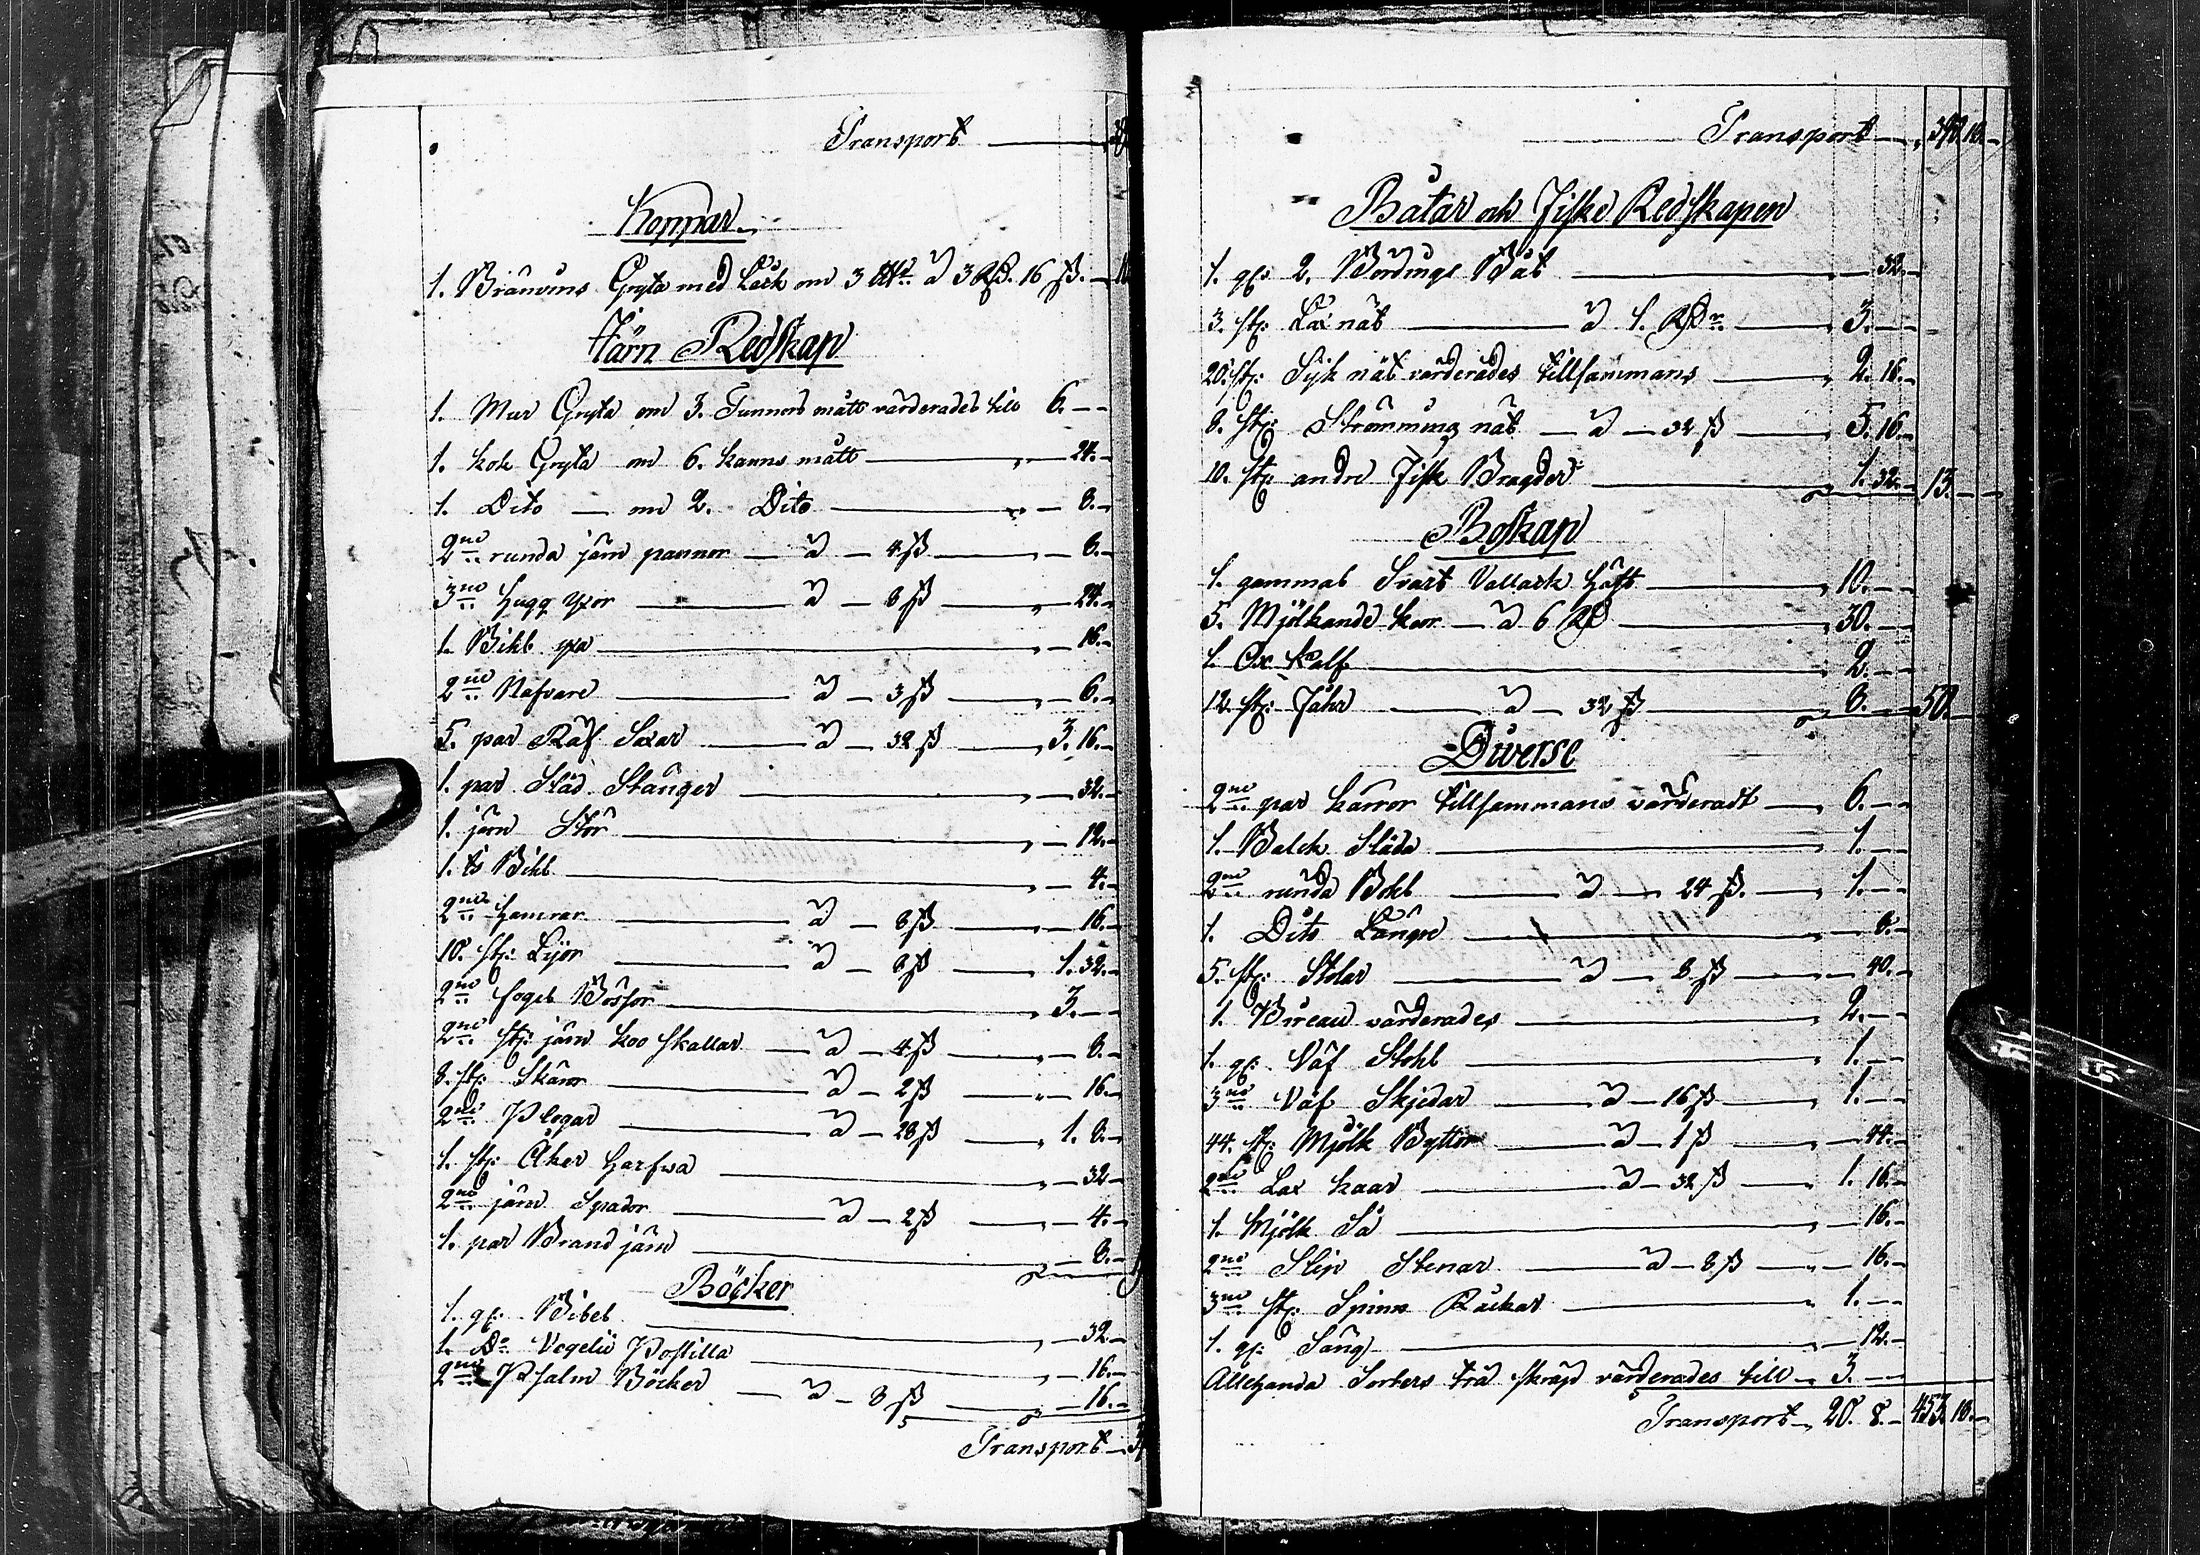 Transport
Koppar
1. Bränvins Gryta med Läck om 3 à 3 Rd. 16 ß.
Järn Redskap
1. Mur Gryta om 3. Tunnors mått värderades till 6. - -
1. kok Gryta om 6. kanns mått - 24. -
1. Dito - om 2. Dito - 8. -
2ne runda järn pannor - à - 4 ß - 8. -
3ne Hugg yxor à - 8 ß - 24. -
1. Bihl yxa - 16. -
2ne Nafvare à - 3 ß - 6. -
5. par Räf Saxar à - 32 ß 3. 16. -
1. par Städ Stänger - 32. -
1. järn Stör - 12. -
1. is Bihl - 4. -
2ne Hamrar à - 8 ß - 16. -
10. st: Lijor à - 8 ß 1. 32. -
2ne fogel Bössor 3. - -
2ne st: järn koo skallar - à - 4 ß - 8. -
8. st: Skäror à - 2 ß - 16. -
2ne Plogar à - 28 ß 1. 8. -
1. st: Åker Harfwa - 32 -
2ne järn Spador à - 2 ß - 4. -
1. par Brand järn - 8. -
Böcker
1. gl: Bibel - 32. -
1. Do Vegelii Postilla - 16. -
2ne Psalm Böcker - à - 8 ß - 16. -
Transport
Transport 390. 16. -
Båtar och Fiske Redskapen
1. gl: 2. Bördings Båt - 32. -
3. st: Lax nät à 1. Rdr 3. - -
20. st: Syk nät värderades tillsammans 2. 16. -
8. st: Strömming nät - à - 32 ß 5. 16. -
10. st: andre Fisk Bragder 1. 32. - 13. - -
Boskap
1. gammal Svart Vallack Häst 10. - -
5. Mjölkande kor - à 6 Rd 30. - -
1. Ox kalf 2. - -
12. st: Fåhr à - 32 ß 8. - - 50. - -
Diverse
2ne par kärror tillsammans värderadt 6. - -
1. Balck Släda 1. - -
2ne runda Bohl à - 24 ß. 1. - -
1. Dito Långe - 8. -
5. st: Stolar à - 8 ß - 40. -
1. Bureau värderades 2. - -
1. gl: Väf Stohl 1. - -
3ne Väf Skjedar à - 16 ß 1. - -
44. st: Mjölk Byttor à - 1 ß - 44. -
2ne Lax kaar à - 32 ß 1. 16. -
1. Mjölk Så - 16. -
2ne Slip Stenar à - 8 ß - 16. -
3ne st: Spinn Råckar 1. - -
1. gl: Säng - 12. -
Allehanda Sorters trä skräp värderades till 3. - -
Transport 20. 8. - 453. 16. -